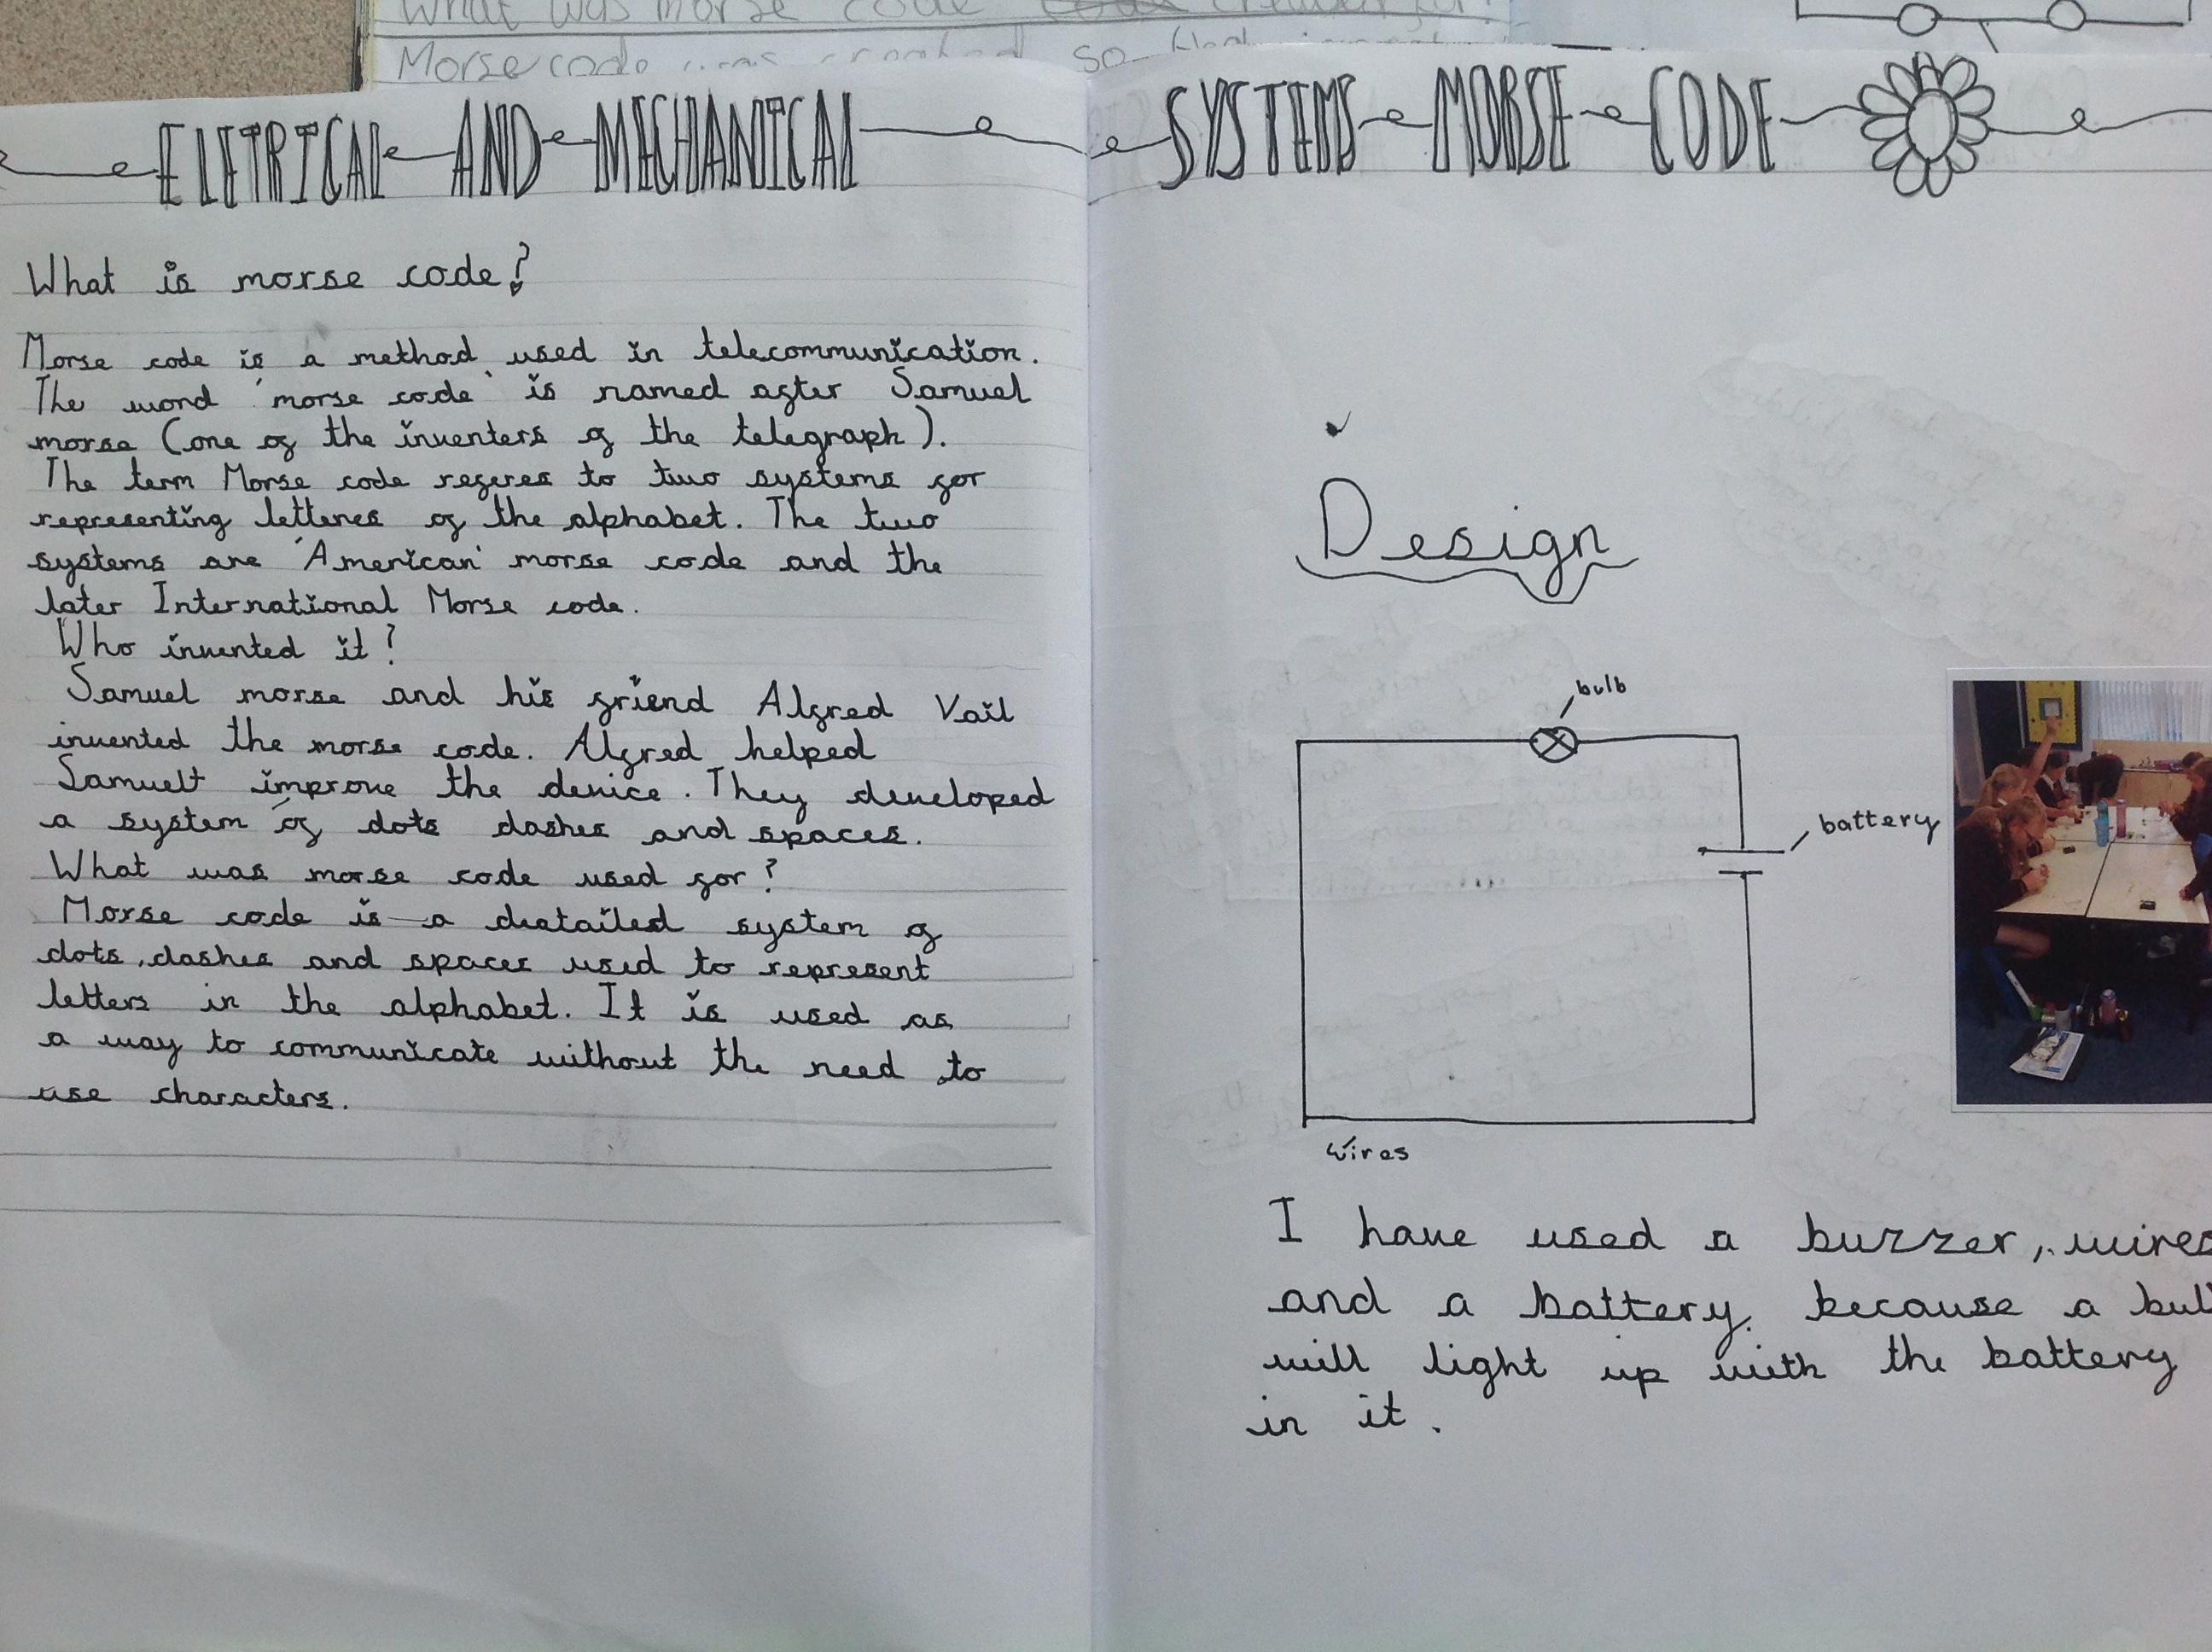 What was morse code
Morse code was created so that
ELETRICAL AND MECHANICAL SYSTEMS MORSE CODE
What is morse code?
Morse code is a method used in telecommunication.
The word 'morse code' is named after Samuel
morse (one of the inventers of the telegraph).
The term Morse code referes to two systems for
representing letteres of the alphabet. The two
systems are 'American' morse code and the
later International Morse code.
Who invented it?
Samuel morse and his friend Alfred Vail
invented the morse code. Alfred helped
Samuelt improve the device. They developed
a system of dots dashes and spaces.
What was morse code used for?
Morse code is a detailed system of
dots, dashes and spaces used to represent
letters in the alphabet. It is used as
a way to communicate without the need to
use characters.
Design
bulb
battery
wires
I have used a buzzer, wires
and a battery. because a bul
will light up with the battery
in it.